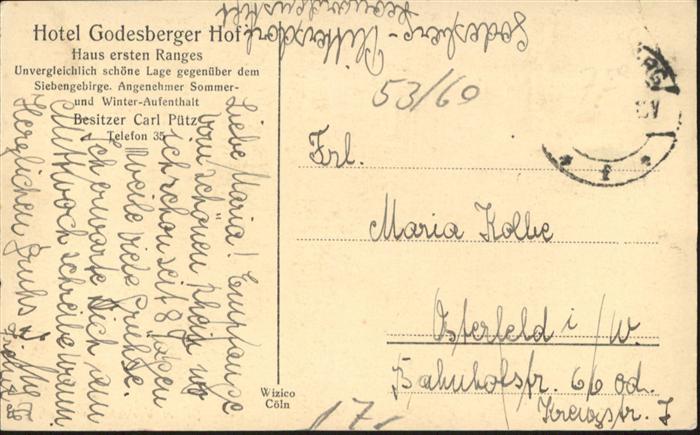 Hotel Godesberger Hof
Haus ersten Ranges
Unvergleichlich schöne Lage gegenüber dem
Siebengebirge. Angenehmer Sommer-
und Winter-Aufenthalt
Besitzer Carl Pütz
Telefon 35
Liebe Maria! Empfange
vom schönen Rhein wo
ich schon seit 8 Tagen
weile viele Grüße.
Ich erwarte Dich am
Mittwoch schreibe wann.
Herzlichen Gruß
Godesberg-
53/60
Frl.
Maria Kolbe
Osterfeld i/W.
Bahnhofstr. 66 od.
Kreuzstr. 7
17
Wizico
Cöln
* f *